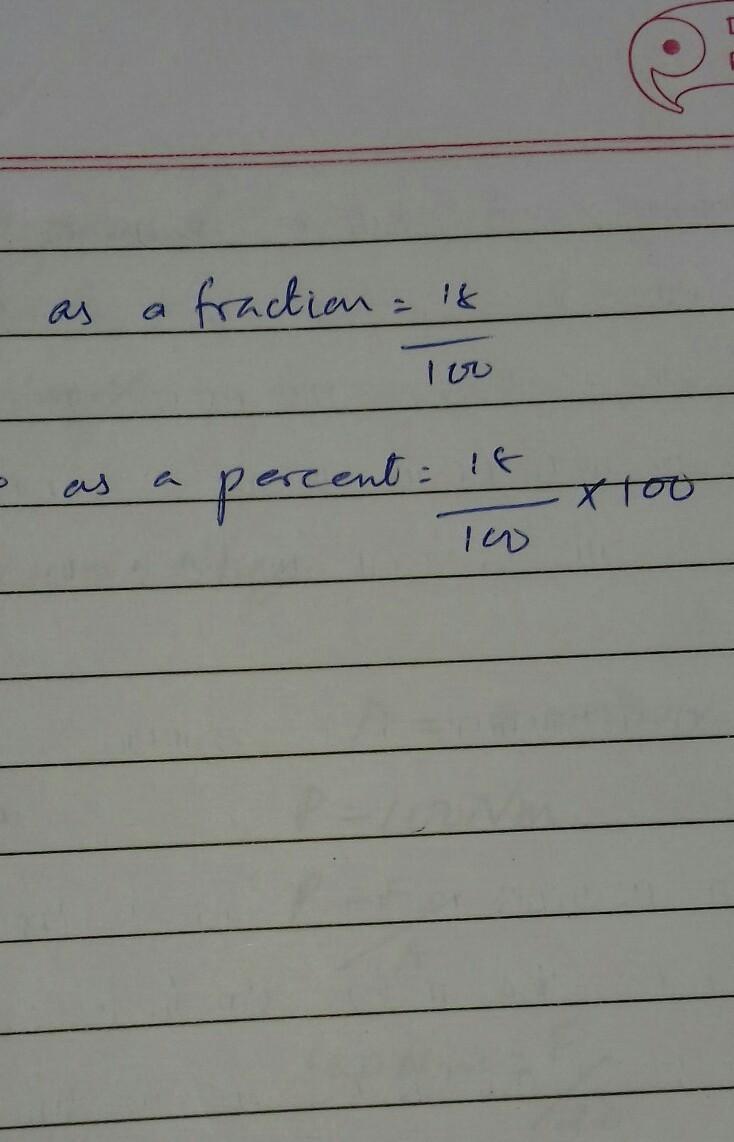 as a fraction = 18
100
as a percent = 18
100 × 100